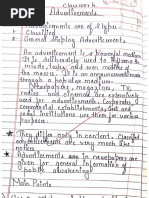 Classwork
Advertisements
Advertisements are of 2 types
1 Classified
2 General Display Advertisements.
An advertisement is a powerful medium
It is deliberately used to
minds, tastes and even motives of
the masses. It is an announcement
through a public medium.
Newspapers, magazines, TV,
radios and cinemas are extensively
used for advertisements. Corporate,
commercial establishments, Govt and
social Institutions use for various
purposes.
They differ only in content. Classified
advertisements are very much like
notices.
Advertisements are in newspapers are
given for general information of
public awakening
Main Points